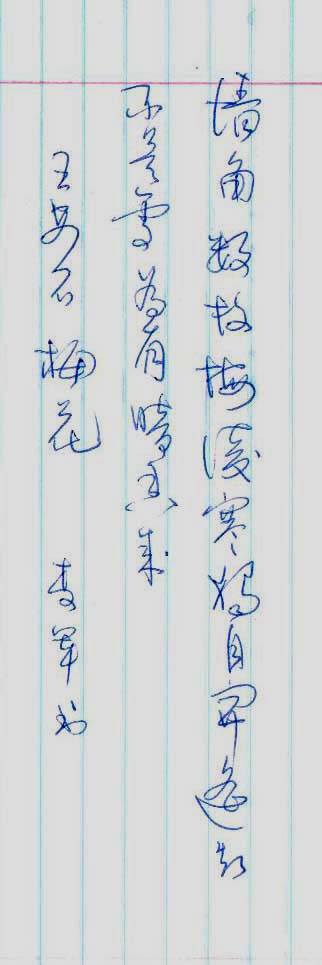 墙角数枝梅凌寒独自开遥知
不是雪为有暗香来
王安石梅花 李军书